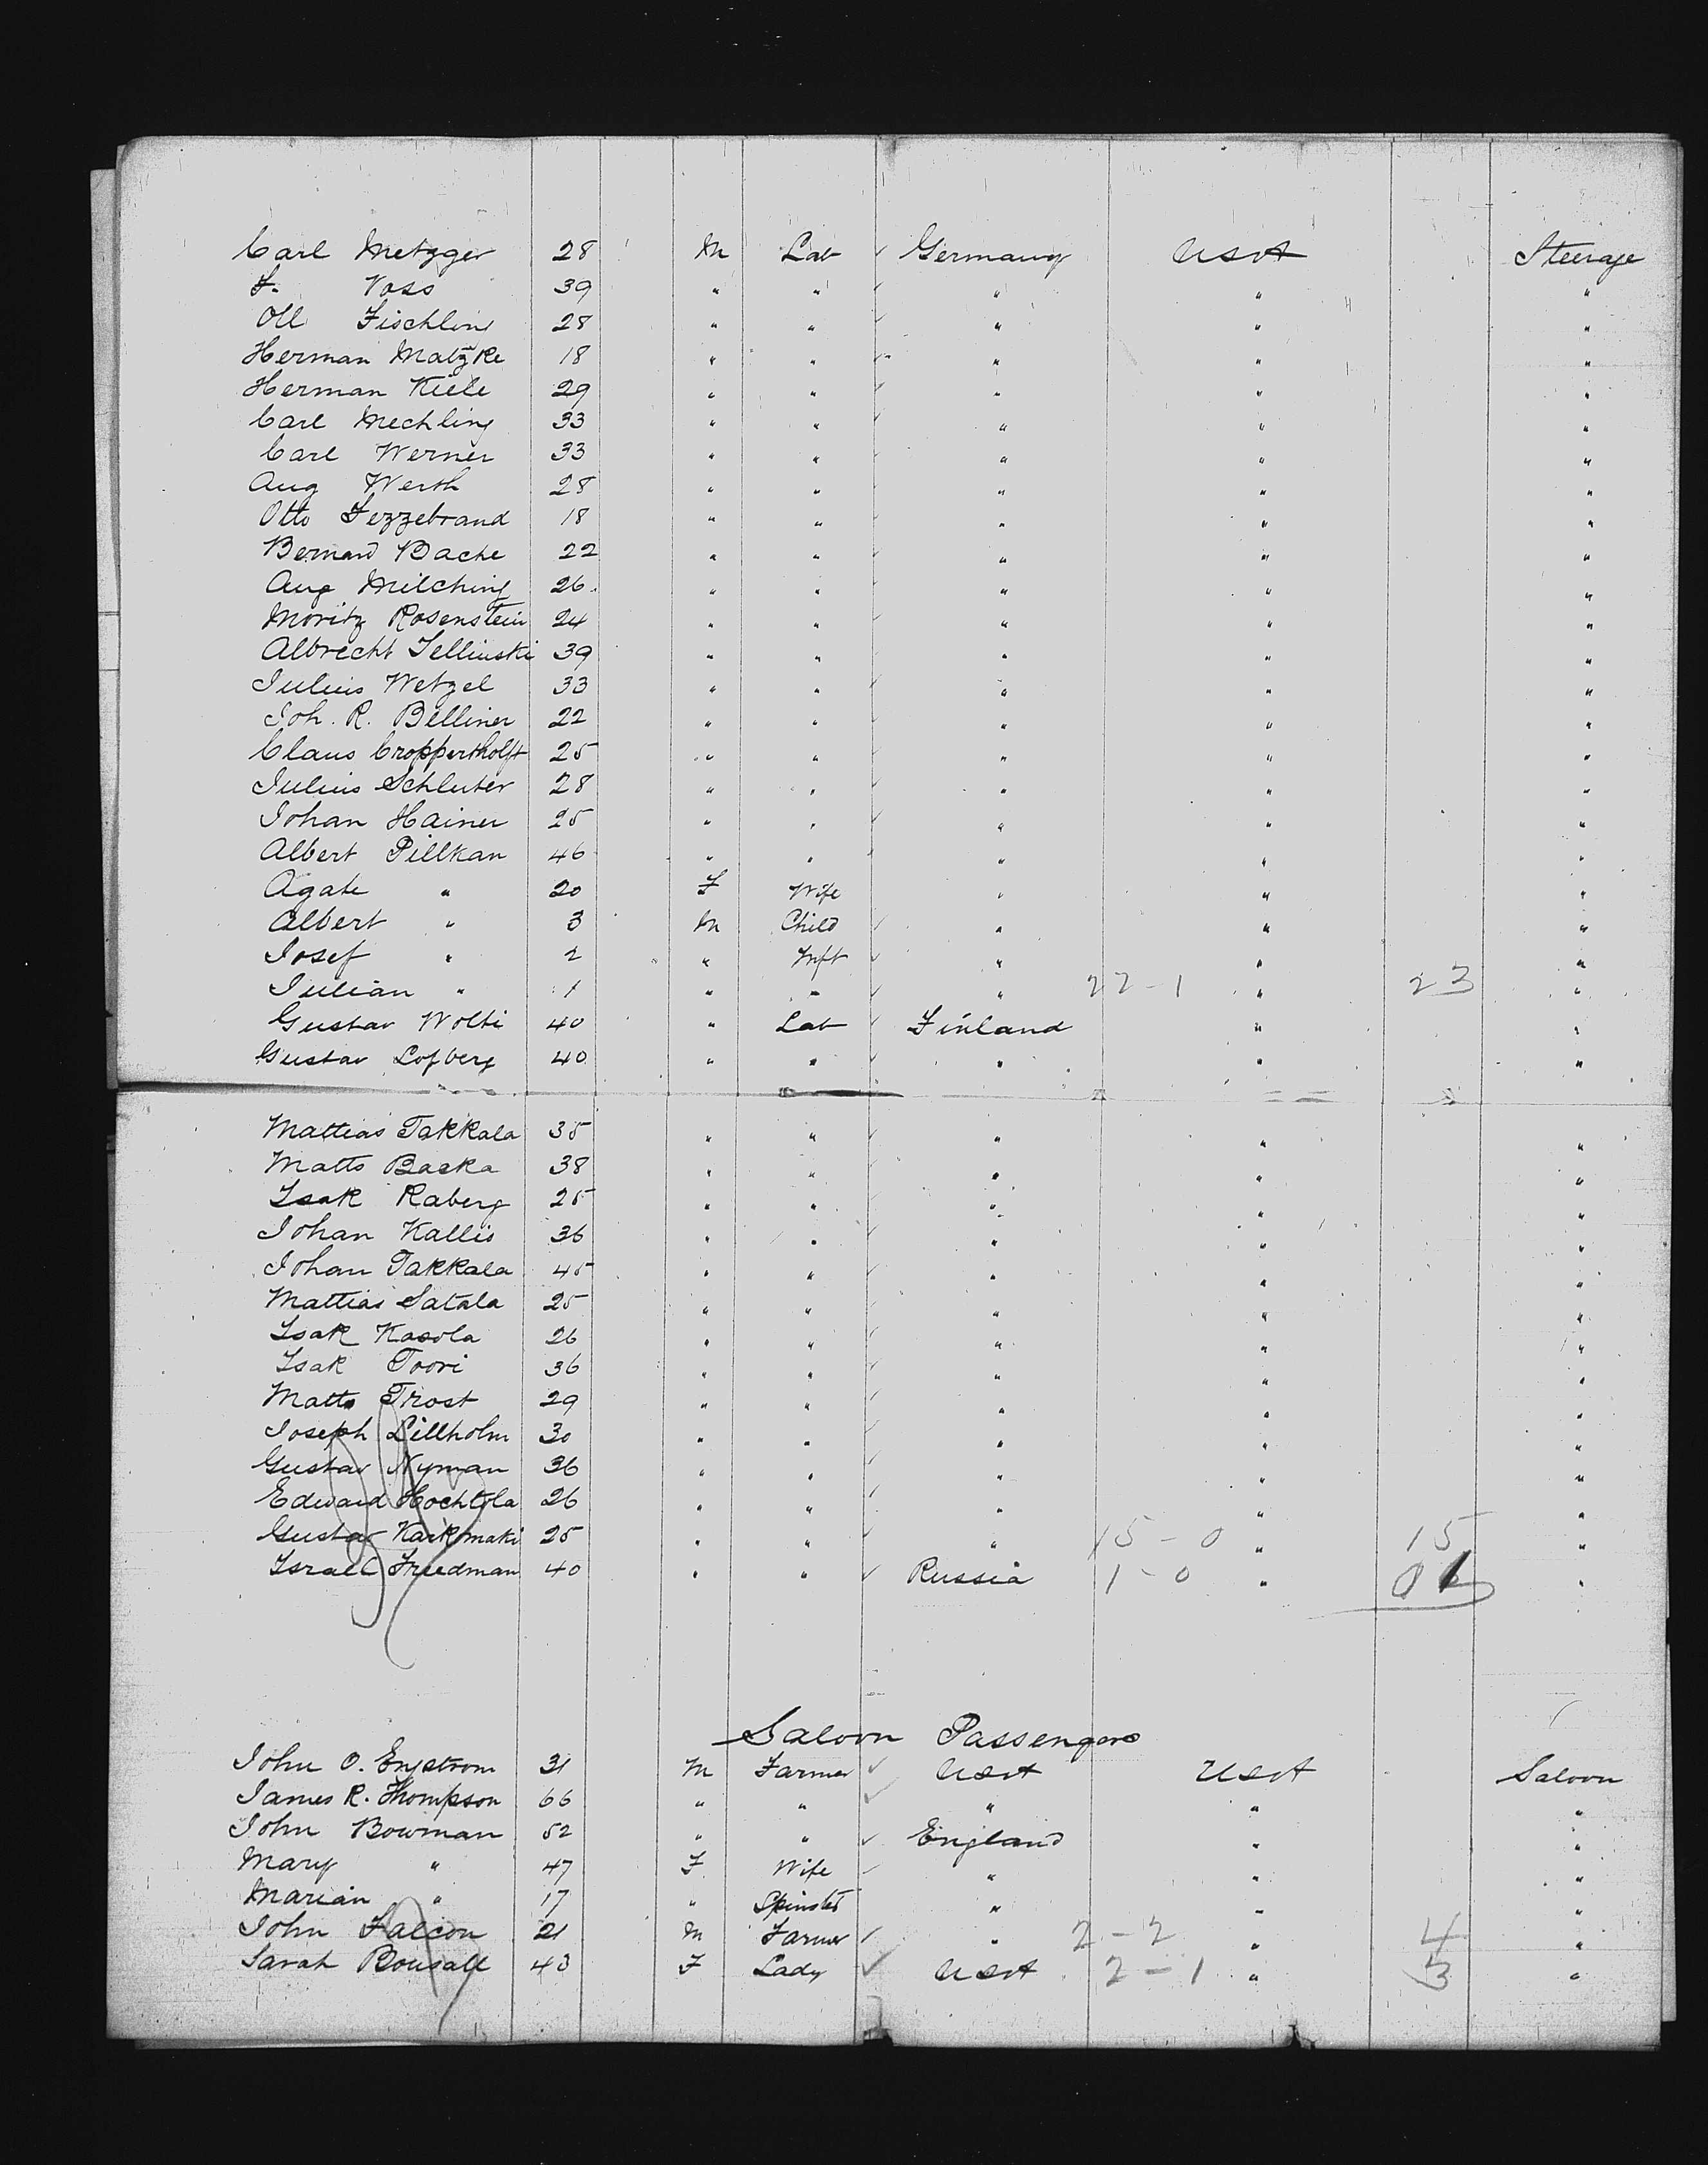 Carl Metzger 28 M Lab Germany USA Steerage
F. Voss 39 " " " " "
Oll Fischling 28 " " " " "
Herman Matzke 18 " " " " "
Herman Kiele 29 " " " " "
Carl Mechling 33 " " " " "
Carl Werner 33 " " " " "
Aug Werth 28 " " " " "
Otto Fezzebrand 18 " " " " "
Bernard Bache 22 " " " " "
Aug Milching 26 " " " " "
Moritz Rosenstein 24 " " " " "
Albrecht Jellinski 39 " " " " "
Julius Wetzel 33 " " " " "
Joh. R. Belliner 22 " " " " "
Claus Croppertholft 25 " " " " "
Julius Schluter 28 " " " " "
Johan Hainer 25 " " " " "
Albert Pillkan 46 " " " " "
Agate " 20 F Wife " " "
Albert " 3 M Child " " "
Josef " 2 " Inft " " "
Julian " 1 " " " 22-1 " 23 "
Gustav Wolti 40 " Lab Finland " "
Gustav Lofberg 40 " " " " "
Mattias Takkala 35 " " " " "
Matts Backa 38 " " " " "
Isak Raberg 25 " " " " "
Johan Kallis 36 " " " " "
Johan Takkala 45 " " " " "
Mattias Satala 25 " " " " "
Isak Kasola 26 " " " " "
Isak Toori 36 " " " " "
Matts Trost 29 " " " " "
Joseph Lillholm 30 " " " " "
Gustav Nyman 36 " " " " "
Edward Hochtola 26 " " " " "
Gustav Karkmaki 25 " " " 15-0 " 15 "
Israel Friedman 40 " " Russia 1-0 " 01 "
Saloon Passengers
John O. Engstrom 31 M Farmer USA USA Saloon
James R. Thompson 66 " " " " "
John Bowman 52 " " England " "
Mary " 47 F Wife " " "
Marian " 17 " Spinster " " "
John Falcon 21 M Farmer " 2-2 " 4 "
Sarah Bonsall 43 F Lady USA 2-1 " 3 "